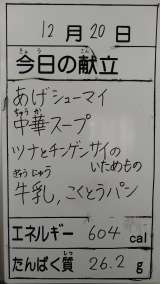 12月20日
きょう こん
今日の献立
あげシューマイ
ちゅうか
中華スープ
ツナとチンゲンサイの
いためもの
ぎゅうにゅう
牛乳,こくとうパン
エネルギー 604 cal
しつ
たんぱく質 26.2 g